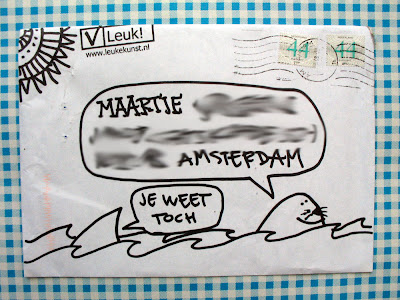 Leuk!
www.leukekunst.nl
44 44
MAARTJE
AMSTERDAM
JE WEET
TOCH